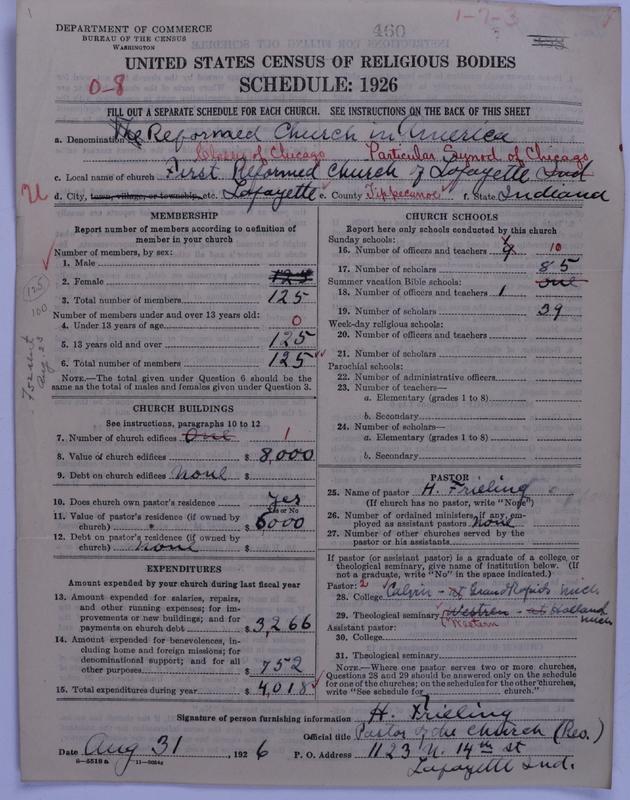 DEPARTMENT OF COMMERCE
BUREAU OF THE CENSUS
WASHINGTON
460
1-7-3
UNITED STATES CENSUS OF RELIGIOUS BODIES
SCHEDULE: 1926
0-8
FILL OUT A SEPARATE SCHEDULE FOR EACH CHURCH. SEE INSTRUCTIONS ON THE BACK OF THIS SHEET
a. Denomination The Reformed Church in America
Classis of Chicago Particular Synod of Chicago
c. Local name of church First Reformed Church of Lafayette Ind
U
d. City, town, village, or township, etc. Lafayette e. County Tippecanoe f. State Indiana
MEMBERSHIP
Report number of members according to definition of member in your church
Number of members, by sex:
1. Male
2. Female 125
3. Total number of members 125
Number of members under and over 13 years old:
4. Under 13 years of age 0
5. 13 years old and over 125
6. Total number of members 125
NOTE.—The total given under Question 6 should be the same as the total of males and females given under Question 3.
125
100
CHURCH BUILDINGS
See instructions, paragraphs 10 to 12
7. Number of church edifices One 1
8. Value of church edifices $ 8,000
9. Debt on church edifices None $
10. Does church own pastor's residence Yes
Yes or No
11. Value of pastor's residence (if owned by church) $ 6000
12. Debt on pastor's residence (if owned by church) None $
EXPENDITURES
Amount expended by your church during last fiscal year
13. Amount expended for salaries, repairs, and other running expenses; for improvements or new buildings; and for payments on church debt $ 3,266
14. Amount expended for benevolences, including home and foreign missions; for denominational support; and for all other purposes $ 752
15. Total expenditures during year $ 4,018
CHURCH SCHOOLS
Report here only schools conducted by this church
Sunday schools:
16. Number of officers and teachers 4 10
17. Number of scholars 85
Summer vacation Bible schools: one
18. Number of officers and teachers 1
19. Number of scholars 39
Week-day religious schools:
20. Number of officers and teachers
21. Number of scholars
Parochial schools:
22. Number of administrative officers
23. Number of teachers—
a. Elementary (grades 1 to 8)
b. Secondary
24. Number of scholars—
a. Elementary (grades 1 to 8)
b. Secondary
PASTOR
25. Name of pastor H. Frieling
(If church has no pastor, write "None")
26. Number of ordained ministers, if any, employed as assistant pastors None
27. Number of other churches served by the pastor or his assistants
If pastor (or assistant pastor) is a graduate of a college or theological seminary, give name of institution below. (If not a graduate, write "No" in the space indicated.)
Pastor: 2
28. College Calvin - at Grand Rapids Mich
29. Theological seminary Western - at Holland Mich
Western
Assistant pastor:
30. College
31. Theological seminary
NOTE.—Where one pastor serves two or more churches, Questions 28 and 29 should be answered only on the schedule for one of the churches; on the schedules for the other churches, write "See schedule for church."
Signature of person furnishing information H. Frieling
Official title Pastor of the Church (Rev.)
Date Aug 31, 1926 P. O. Address 1123 N. 14th St
Lafayette Ind.
8-5518a 11-9024a